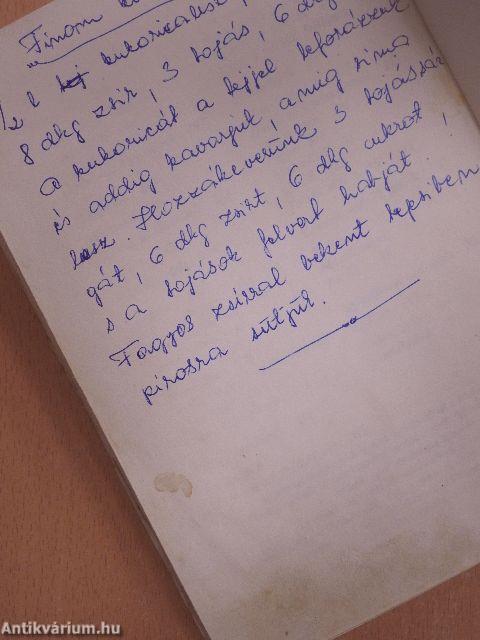 Finom
1/2 l tej kukoricaliszt,
8 dkg zsir, 3 tojás, 6 dkg
a kukoricát a tejjel leforrázzuk
és addig kavarjuk, amig sima
lesz. Hozzákeverünk 3 tojássár
gát, 6 dkg zsirt, 6 dkg cukrot,
s a tojások felvert habját.
Fagyos zsirral bekent tepsiben
pirosra sütjük.
Antikvárium.hu